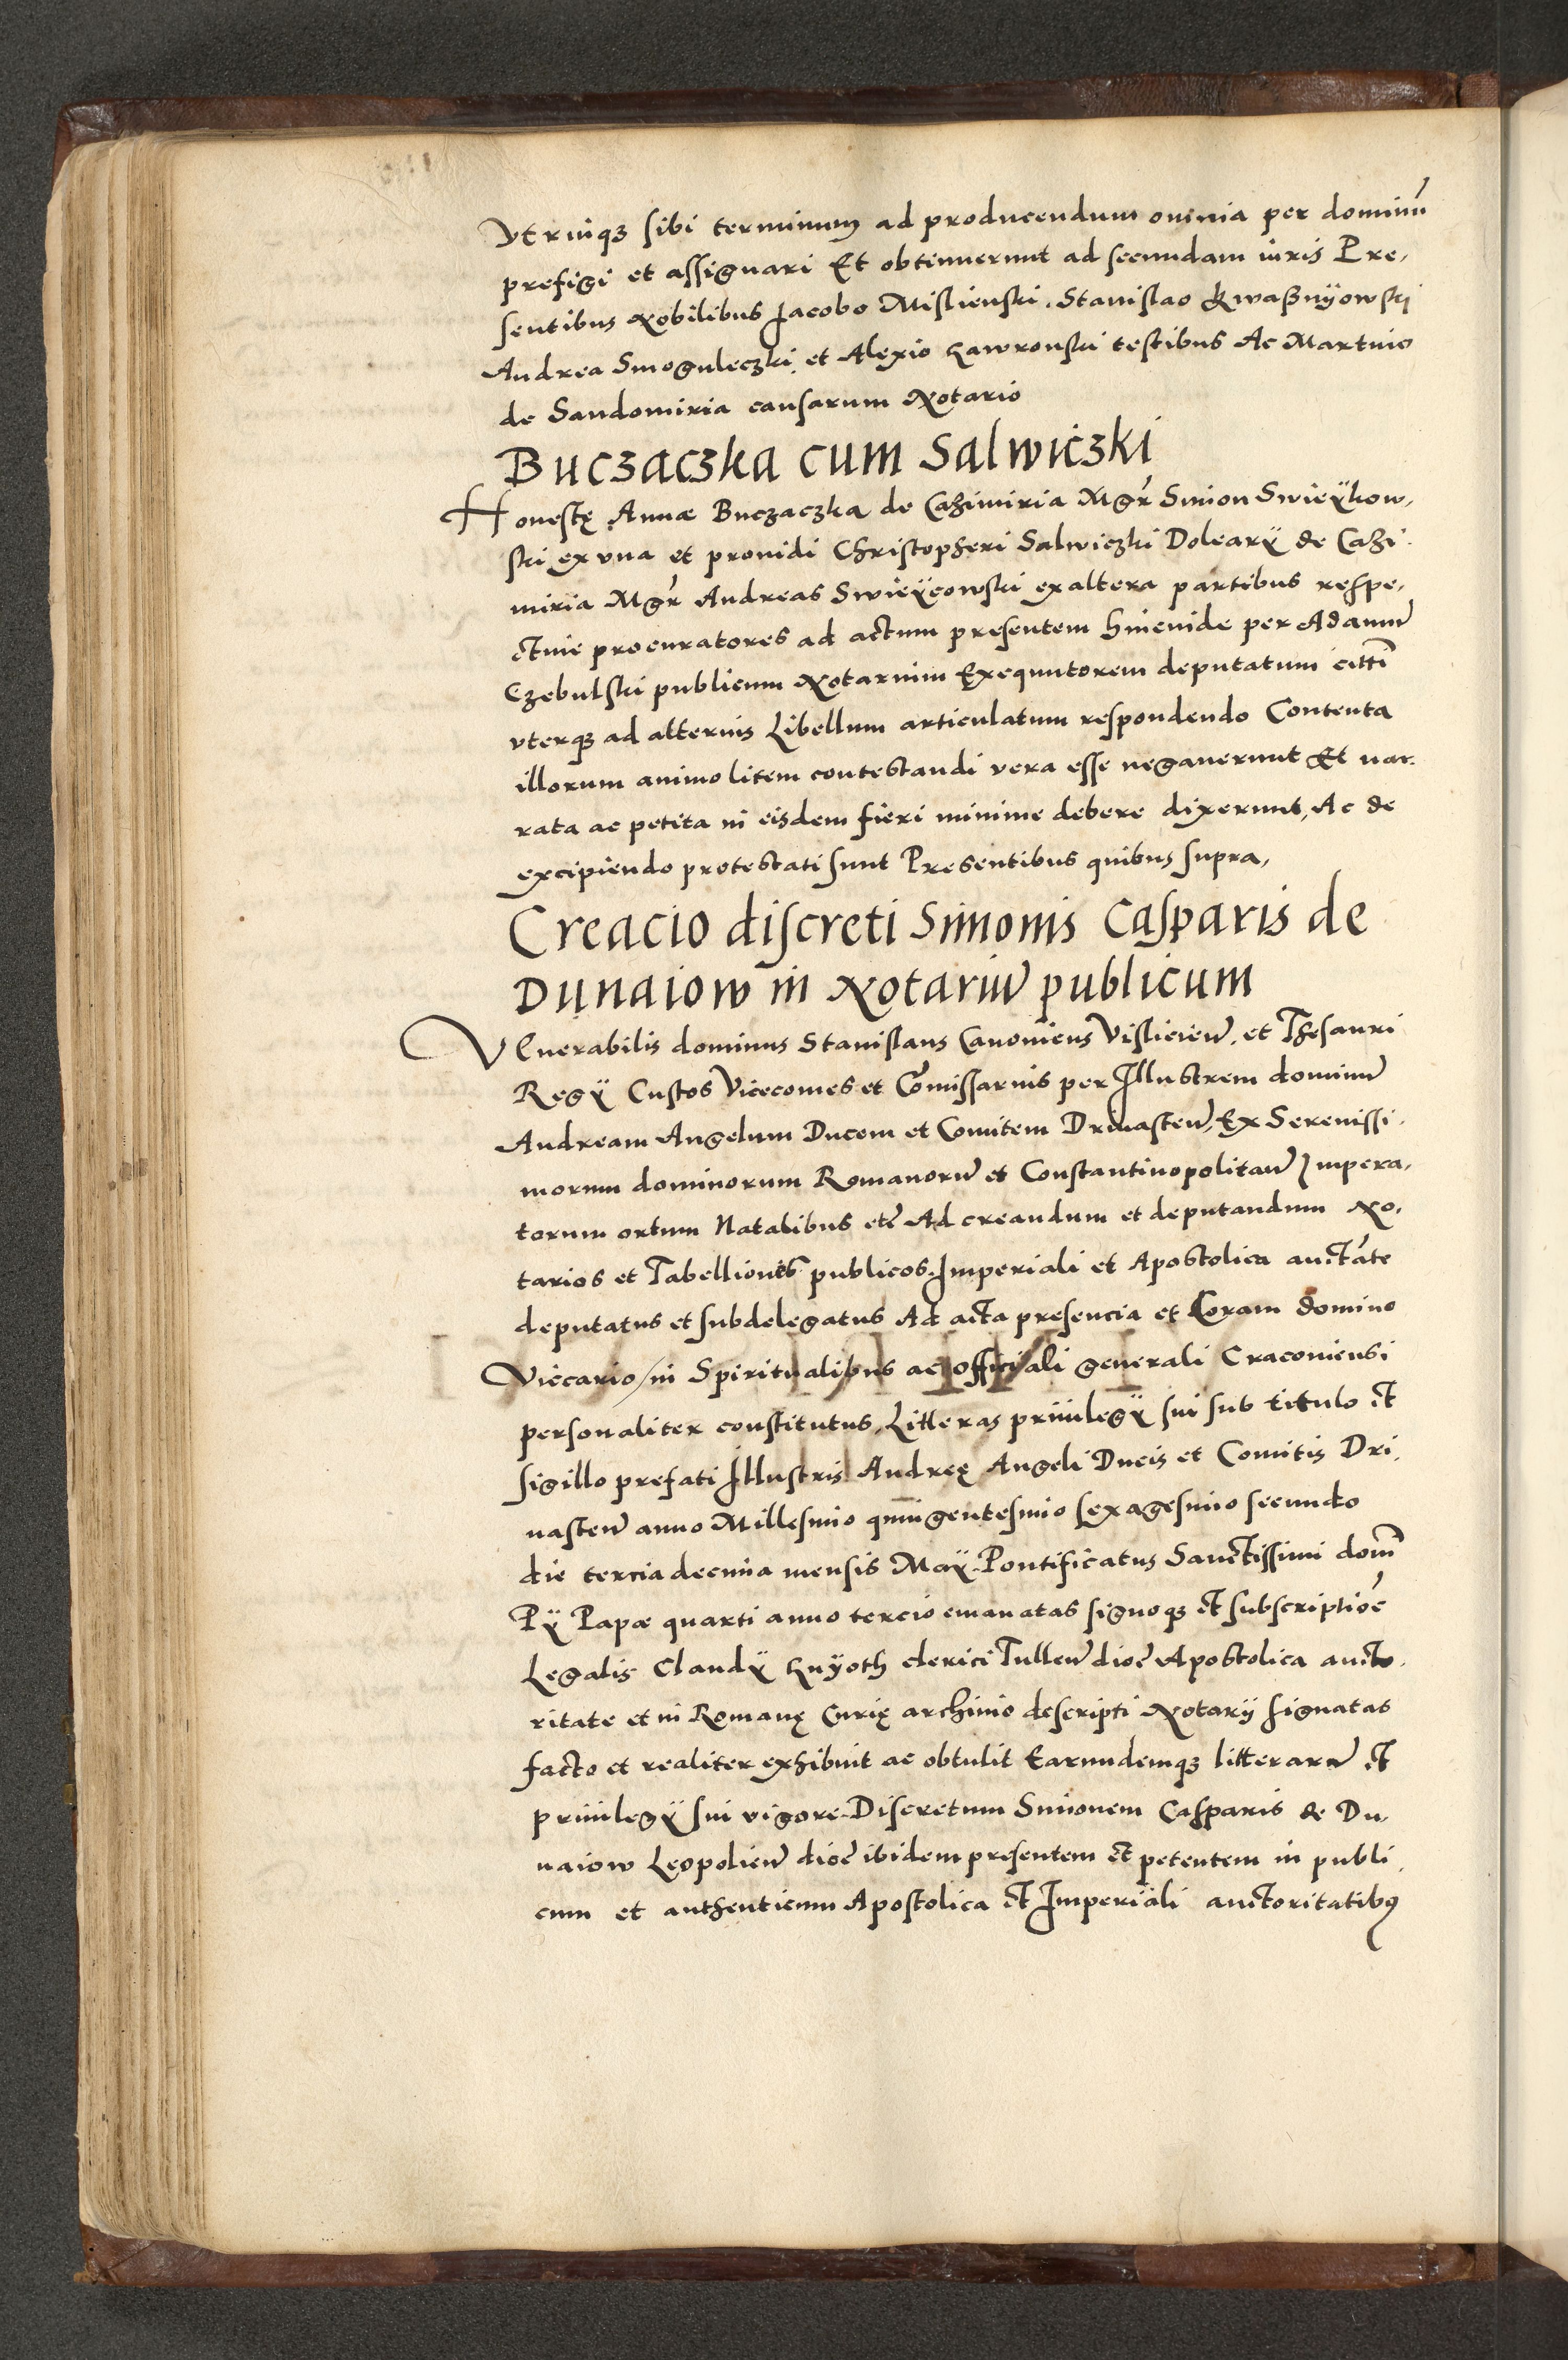 vtrinqz sibi terminum ad producendum omnia per dominũ
prefigi et assignari Et obtinuerunt ad secundam iuris Pre,
sentibus Nobilibus Jacobo Mislienski. Stanislao Kwaßnÿowski
Andrea Smoguleczki, et Alexio Gawronski testibus Ac Martino
de Sandomiria causarum Notario
Buczaczka cum Salwiczki
Honestę Annæ Buczaczka de Cazimiria Mgr̃ Simon Swieÿkow,
ski ex vna et prouidi Christopheri Salwiczki Dolearÿ de Cazi.
miria Mgr̃ Andreas Swieÿcowski ex altera partibus respe,
ctiue procuratores ad actum presentem hincinde per Adamũ
Czebulski publicum Notarium Exequutorem deputatum citti
vterqz ad alterius Libellum articulatum respondendo Contenta
illorum animo litem contestandi vera esse negauerunt Et nar.
rata ac petita in eisdem fieri minime debere dixerunt, Ac de
excipiendo protestati sunt Presentibus quibus supra,
Creacio discreti Simonis Casparis de
Dunaiow in Notariũ publicum
VEnerabilis dominus Stanislaus Canonicus Vislicieñ. et Thesauri
Regÿ Custos Vicecomes et Cõmissarius per Illustrem dominũ
Andream Angelum Ducem et Comitem Driuasteñ, Ex Serenissi.
morum dominorum Romanorũ et Constantinopolitañ Impera,
torum ortum Natalibus etc̃ Ad creandum et deputandum No,
tarios et Tabelliones publicos Imperiali et Apostolica auctãte
deputatus et subdelegatus Ad acta presencia et Coram domino
Viccario in Spiritualibus ac officiali generali Cracouiensi
personaliter constitutus, Litteras priuilegÿ sui sub titulo et
sigillo prefati Illustris Andreę Angeli Ducis et Comitis Dri,
uasteñ anno Millesimo quingentesimo sexagesimo secundo
die tercia decima mensis Maÿ Pontificatus Sanctissimi dom̃
Pÿ Papæ quarti anno tercio emanatas signoqz et subscriptiõe
Legalis Claudÿ Guÿoth clerici Tulleñ dioc̃ Apostolica aucto,
ritate et in Romanę Curię archiuio descripti Notarij signatas
facto et realiter exhibuit ac obtulit Earundemqz litterarũ et
priuilegÿ sui vigore Discretum Simonem Casparis de Du,
naiow Leopolieñ dioc̃ ibidem presentem et petentem in publi,
cum et authenticum Apostolica et Imperiali auctoritatibꝰ